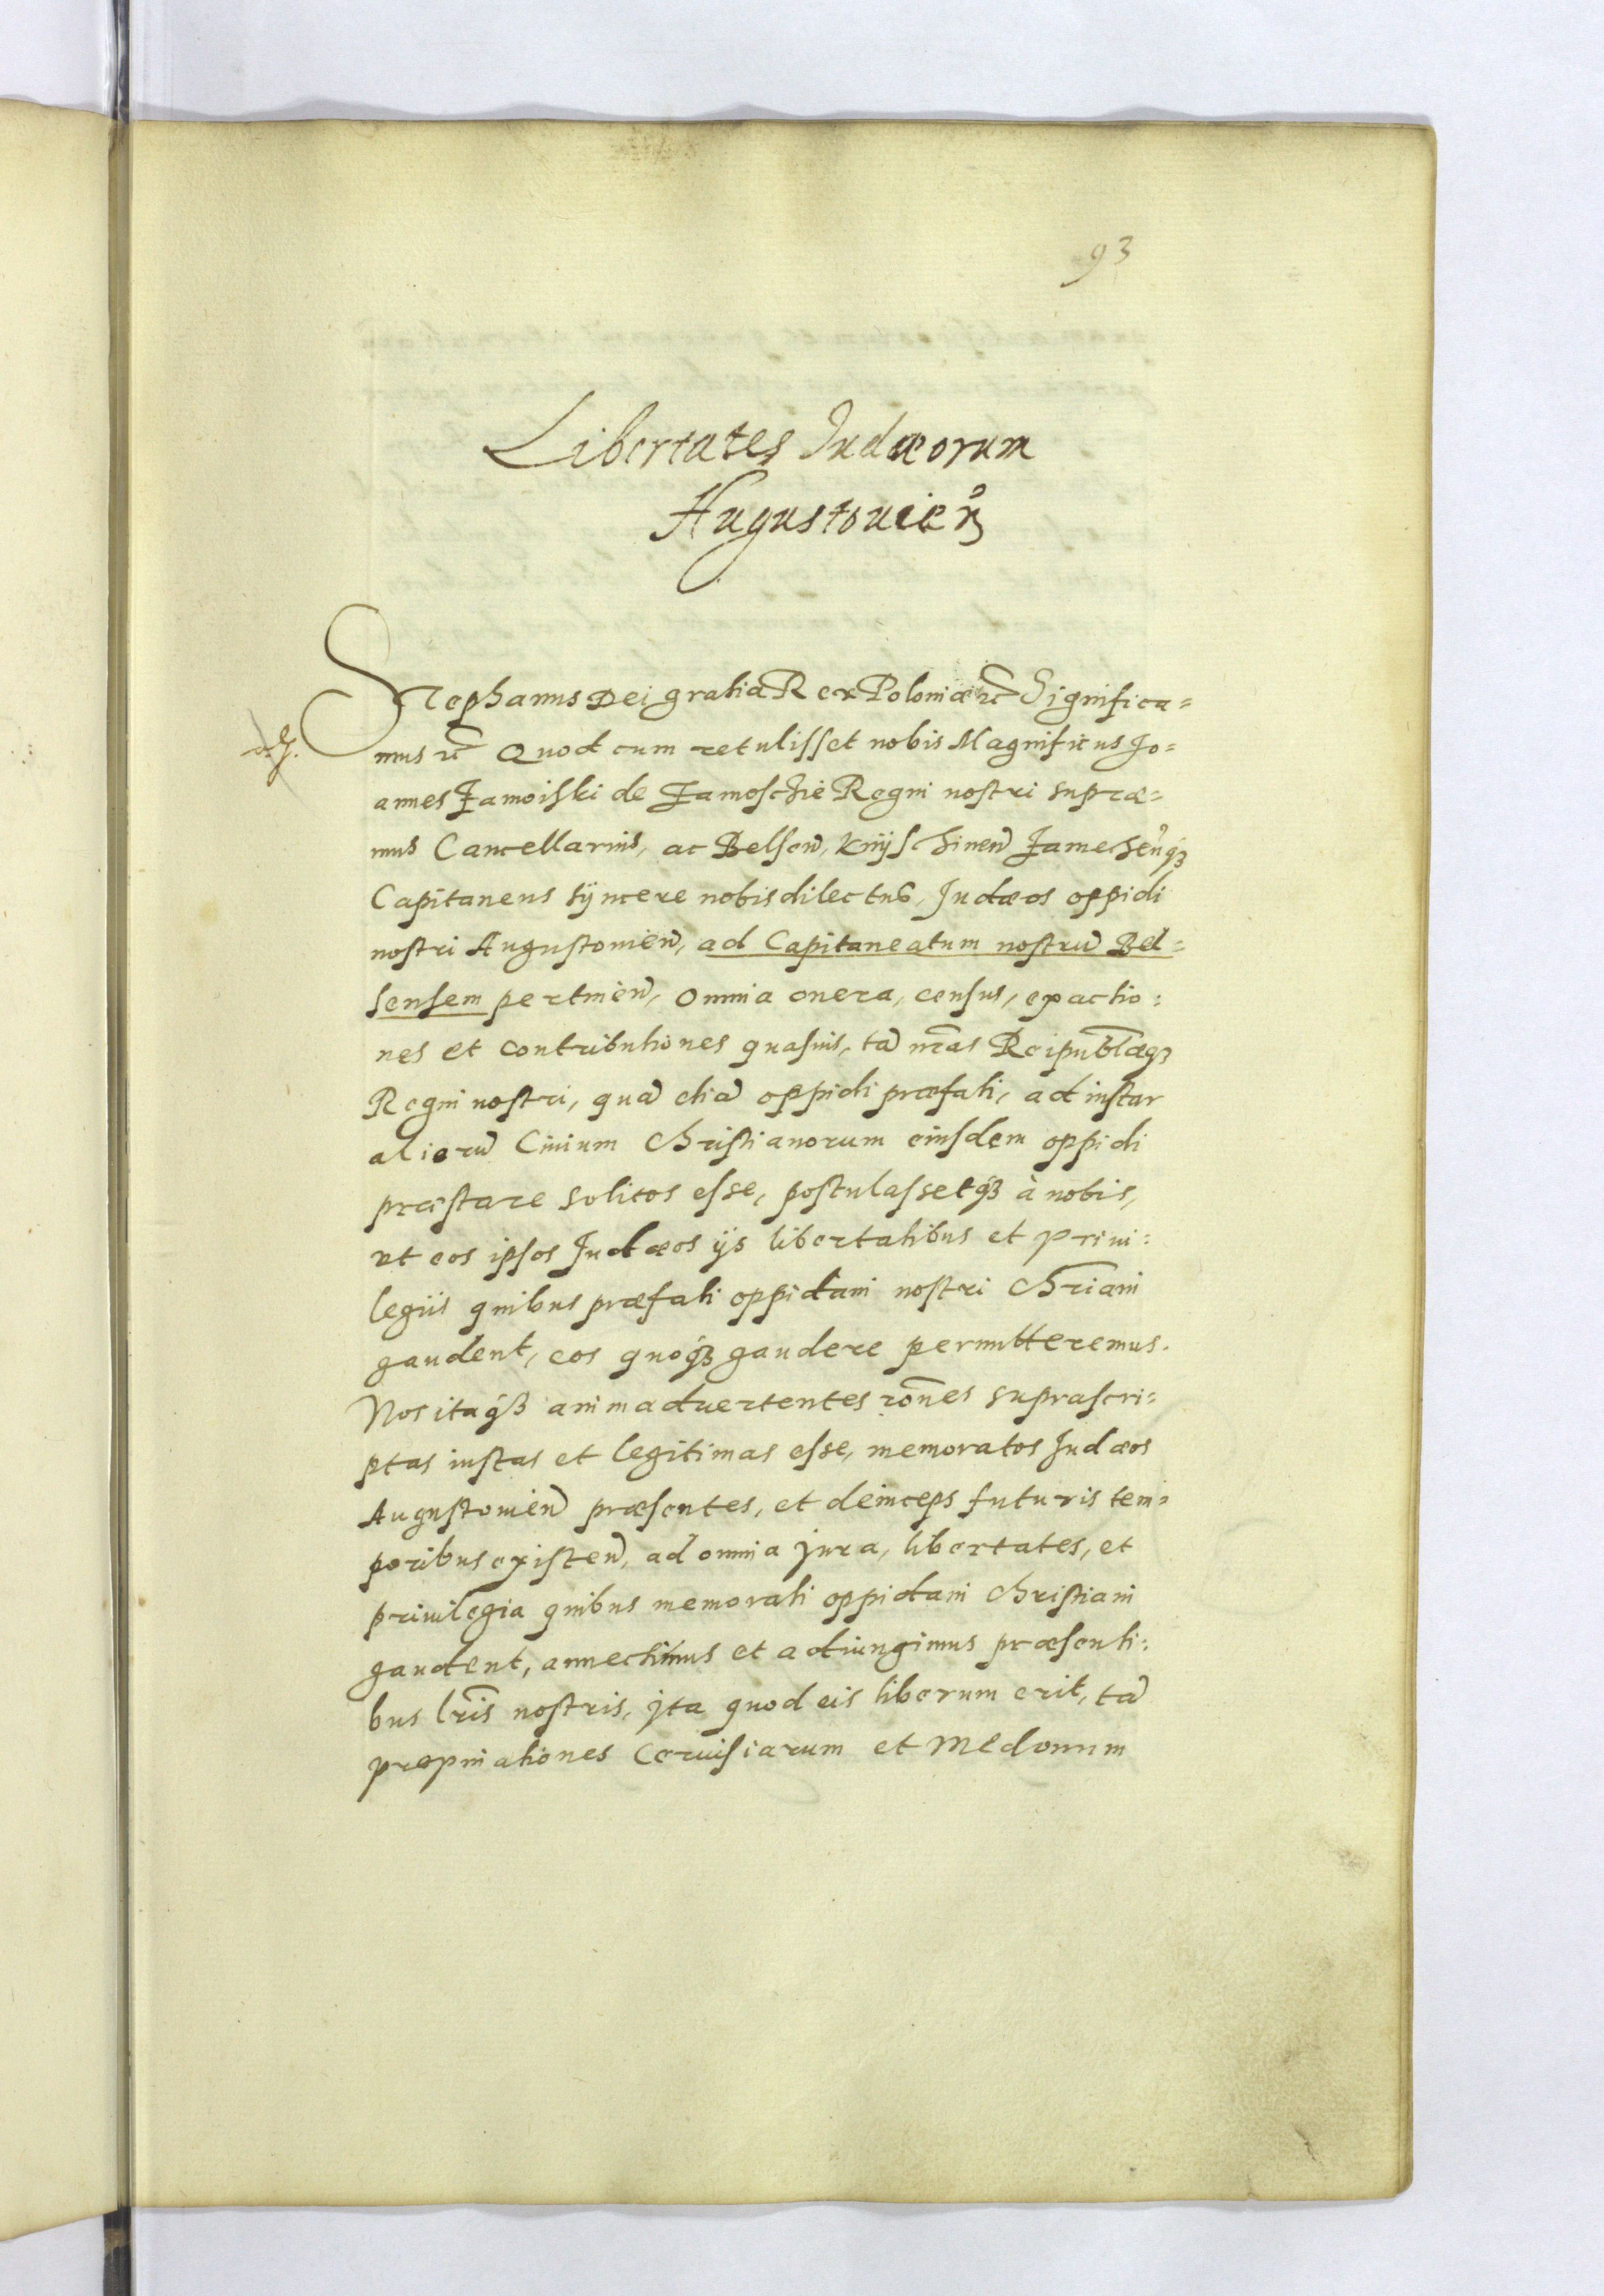 93
Libertates Judæorum
Augustouieñ
Stephanus Dei gratia Rex Poloniæ etc Significa=
mus etc Quod cum retulisset nobis Magnificus Jo=
annes Zamoiski de Zamoschie Regni nostri supræ=
mus Cancellarius, ac Belseñ, Knijschineñ Zamecheñq3
Capitaneus syncere nobis dilectus, Judæos oppidi
nostri Augustouieñ, ad Capitaneatum nostrũ Bel=
sensem pertineñ, omnia onera, census, exactio:
nes et contributiones quasuis, tã nr̃as Reipub̃læq3
Regni nostri, quã etiã oppidi præfati, ad instar
aliorũ Ciuium Christianorum eiusdem oppidi
præstare solitos esse, postulassetq3 à nobis,
vt eos ipsos Judæos ijs libertatibus et priui:
legiis quibus præfati oppidani nostri Chr̃iani
gaudent, eos quoq3 gaudere permitteremus.
Nos itaq3 animaduertentes rõnes suprascri:
ptas iustas et legitimas esse, memoratos Judæos
Augustouieñ præsentes, et deinceps futuris tem=
poribus existeñ, ad omnia jura, libertates, et
priuilegia quibus memorati oppidani Christiani
gaudent, annectimus et adiungimus præsenti:
bus lr̃is nostris, jta quod eis liberum erit, tã
propinationes Ceruisiarum et Medonum